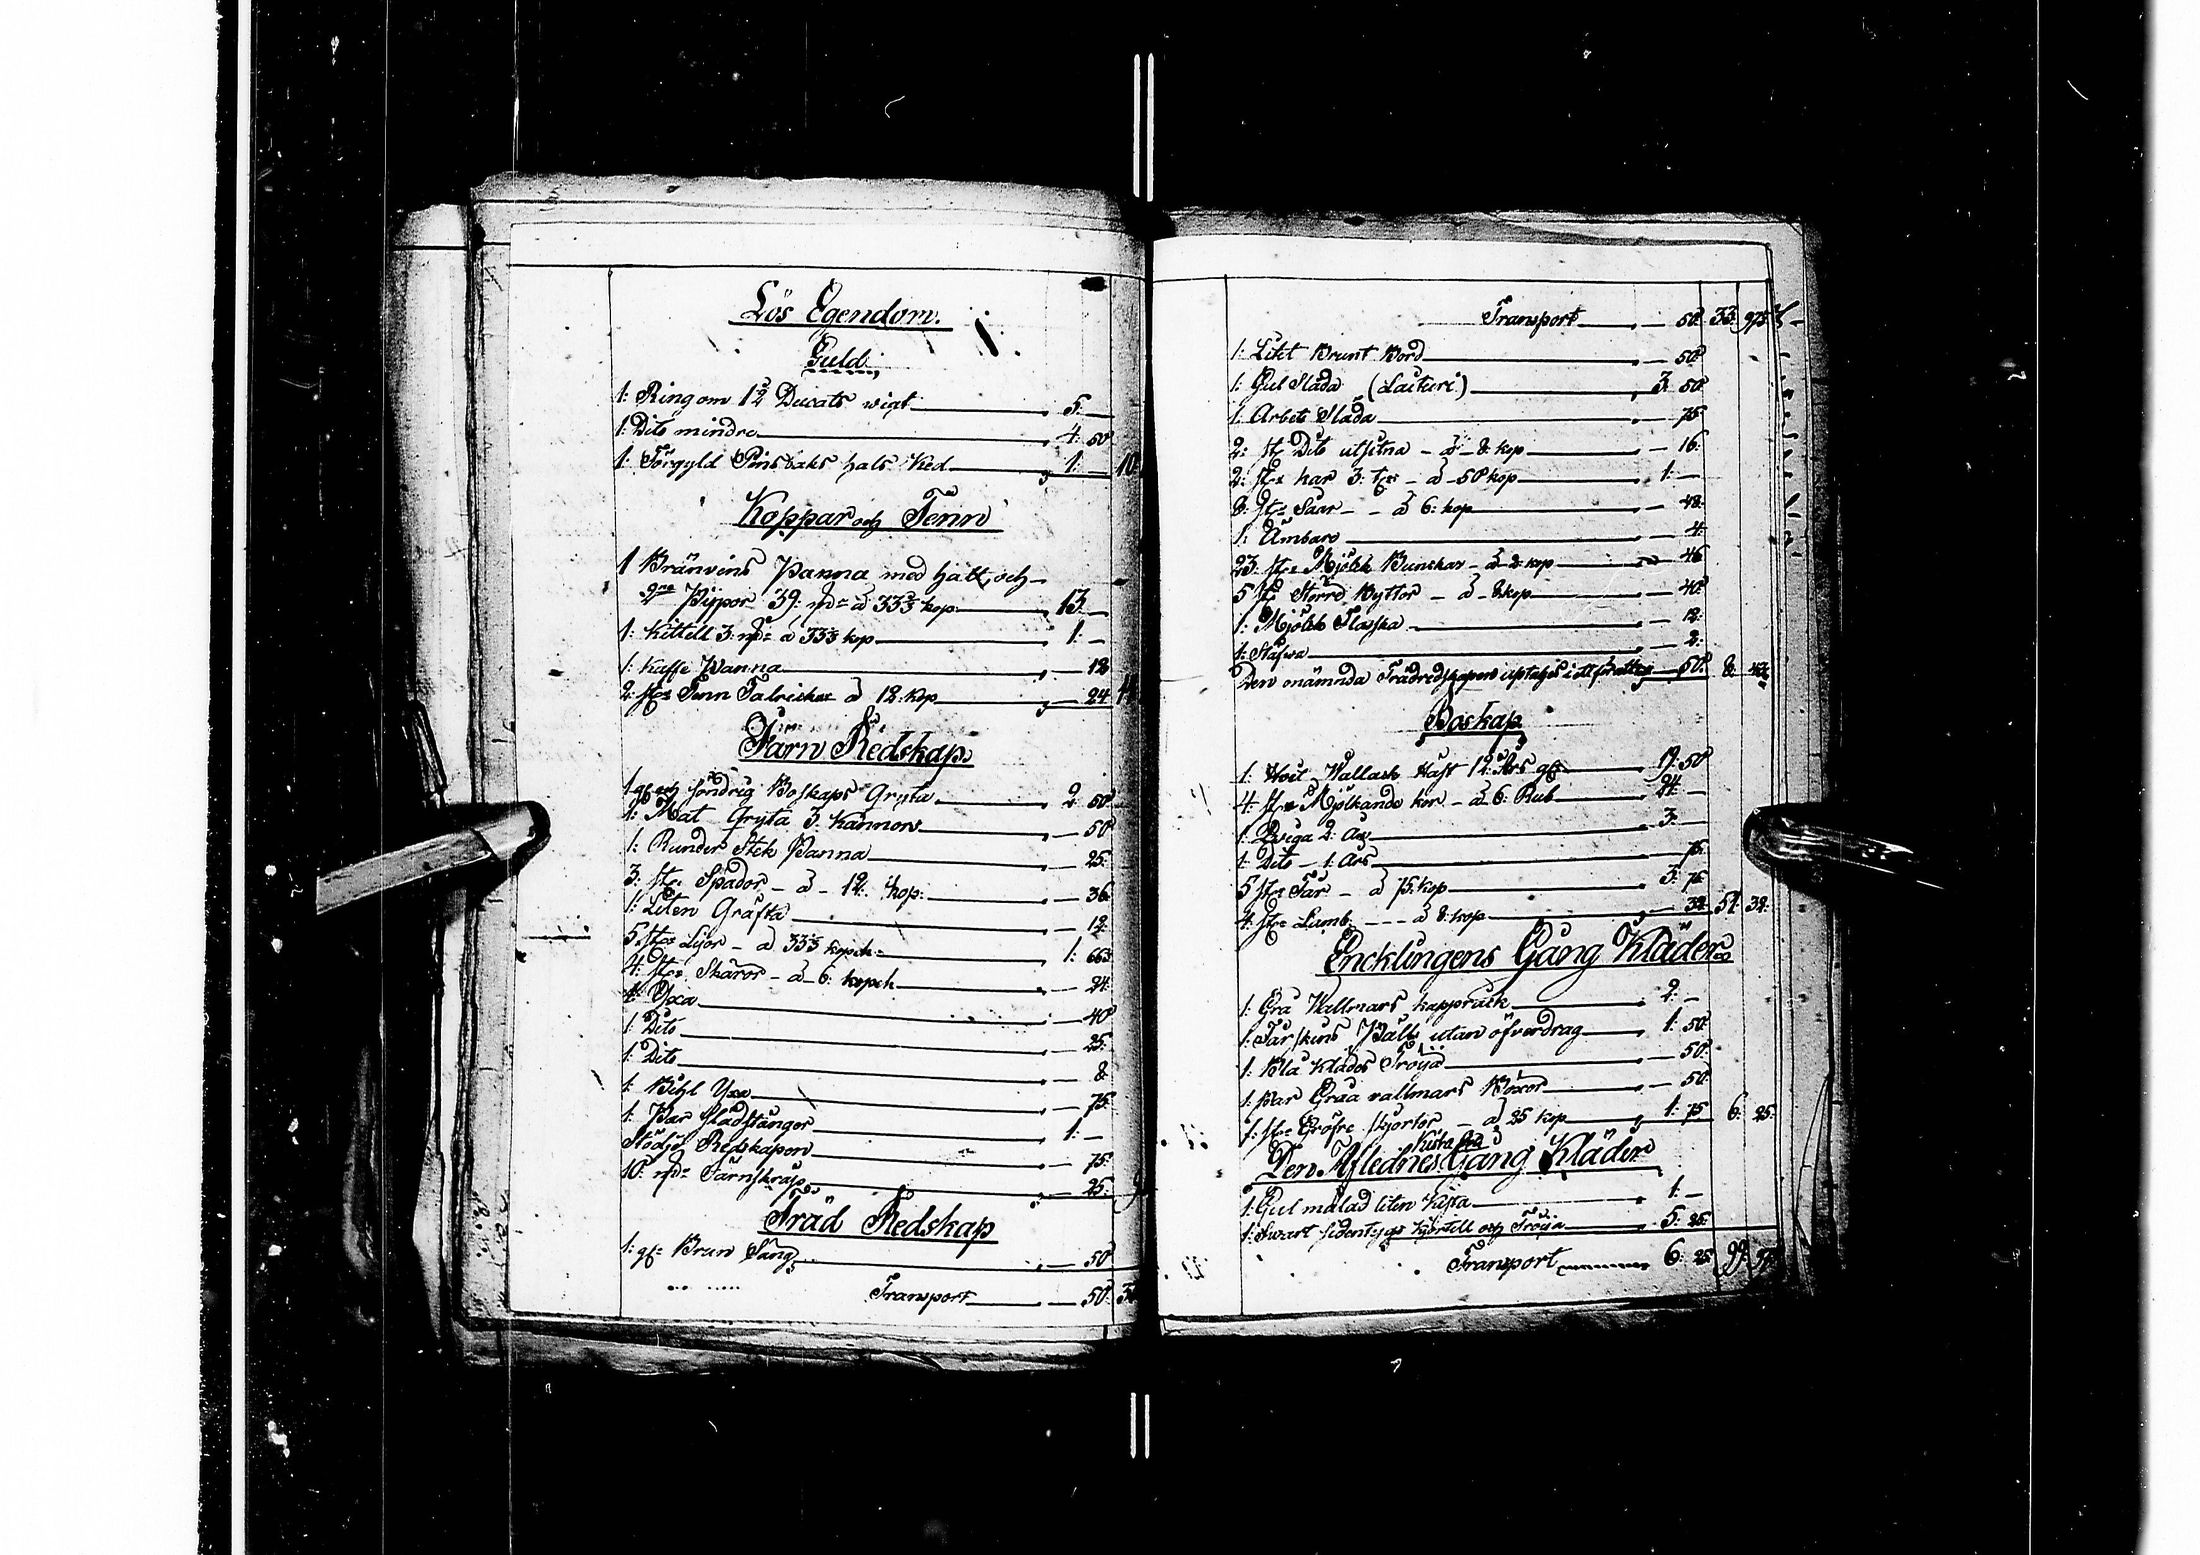 Lös Egendom.
Guld
1: Ring om 1½ Ducats wigt 5. —
1: Dito mindre 4: 50
1: Förgyld Pinsbaks hals ked 1: — 10:
Koppar och Tenn
1 Bränvins Panna med hatt, och
2ne Pippor 39: ℔ à 33⅓ kop 13. —
1: Kittell 3: ℔ à 33⅓ kop 1: —
1: Kaffe Panna — 18
2: st: Tenn Talrickar à 12: kop — 24
Järn Redskap
1 söndrig Boskaps Gryta 2 50
1: Mat Gryta 3: Kannors — 50
1: Runder Stek Panna — 25:
3: st: Spador — à — 12: kop: — 36
1: Liten Gräfta — 12:
5: st: Lijor — à 33⅓ kopek 1: 66⅔
4: st: Skäror — à 6: kopek — 24
1: Yxa — 40
1: Dito — 25:
1: Dito — 8
1: Bihl Yxa — 75:
1: Par Slädstänger 1: —
Redskapen — 75:
10: ℔ Järnskrap — 25:
Träd Redskap
1: gl: Brun Säng — 50
Transport — 50: 3
Transport — 50: 33: 97⅔
1: Litet Brunt Bord — 50:
1: Gul Släda (Laituri) 3: 50:
1: Arbets Släda — 75
2: st: Dito utslitna — à — 8: kop — 16:
2: st: har 3: — à — 50 kop 1: —
8: st: Såar — — à 6: kop — 48:
1: Ämbare — 4:
23: st: Mjölk Bunckar — à 2: kop — 46
5 st: Större Byttor — à — 8 kop — 40:
1: Mjölk Flaska — 12:
1: Stäfwa — 2:
Den onämnda Trädredskapen uptages i ett för allt — 50: 8:
Boskap
1: Wallack Häst 12: Års gl: 17: 50
4: st: Mjölkande kor — à 6: Rub 24: —
1: Qviga 2: År 3: —
1: Dito — 1: Års — 75
5 st: Får — à 75: kop 3: 75
4: st: Lamb — — — à 8: kop — 32: 51: 32:
Encklingens Gång Kläder
1: Grå Wallmars kappråck 2: —
1: Fårskins Pälts utan öfverdrag 1: 50:
1: Blå Klädes Tröija — 50:
1: par Gråa vallmars Böxor — 50:
7: st: Gröfre skjortor — à 25 kop 1: 75 6: 25:
Kista och
Den Aflednes Gång Kläder
1: Gul målad liten Kista 1: —
1: Swart sidentygs Kjortell och Tröija 5: 25:
Transport 6: 25 99: